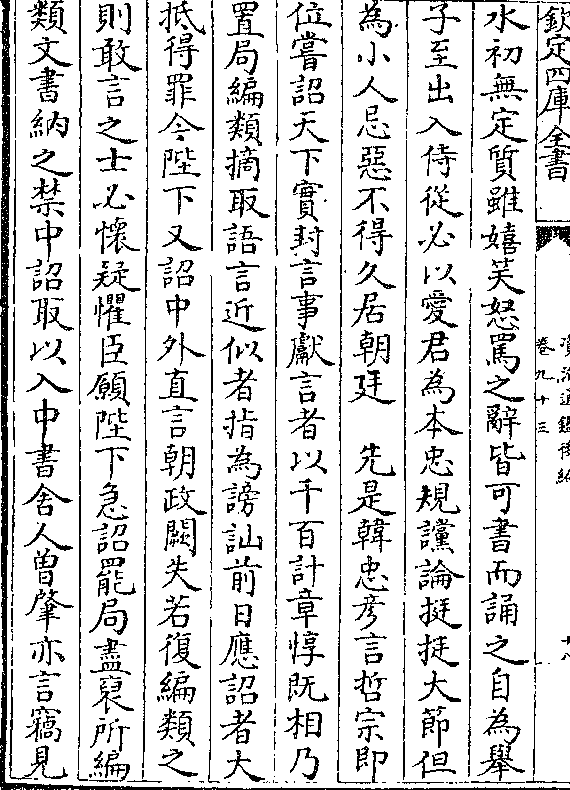 欽定四庫全書
資治通鑑後編
卷九十三
十八
水初無定質雖嬉笑怒罵之辭皆可書而誦之自為舉
子至出入侍從必以愛君為本忠規讜論挺挺大節但
為小人忌惡不得久居朝廷　先是韓忠彥言哲宗即
位嘗詔天下實封言事獻言者以千百計章惇既相乃
置局編類摘取語言近似者指為謗訕前日應詔者大
抵得罪今陛下又詔中外直言朝政闕失若復編類之
則敢言之士必懷疑懼臣願陛下急詔罷局盡裒所編
類文書納之禁中詔取以入中書舍人曾肇亦言竊見